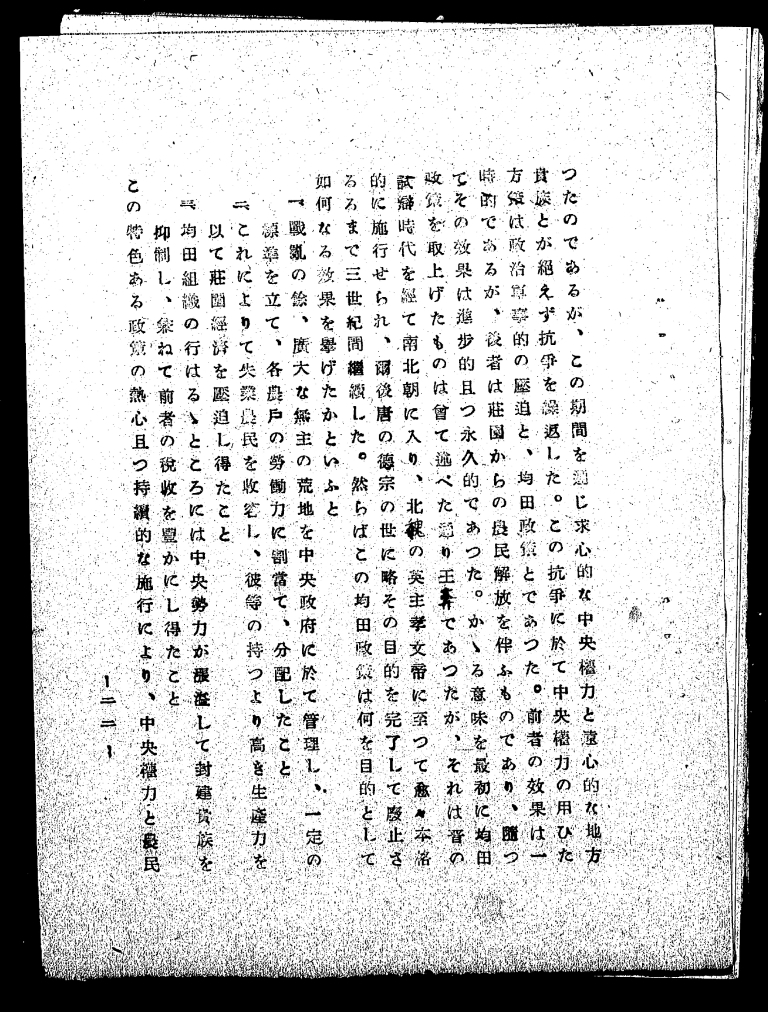 つたのであるが、この期間を通じ求心的な中央權力と遠心的な地方
貴族とが絶えず抗爭を繰返した。この抗爭に於て中央權力の用ひた
方策は政治軍事的の壓迫と、均田政策とであつた。前者の効果は一
時的であるが、後者は莊園からの農民解放を伴ふものであり、隨つ
てその效果は進步的且つ永久的であつた。かゝる意味を最初に均田
政策を取上げたものは曾て述べた通り王莽であつたが、それは晋の
試辯時代を經て南北朝に入り、北魏の英主孝文帝に至つて愈々本格
的に施行せられ、爾後唐の德宗の世に略その目的を完了して廢止さ
るるまで三世紀間繼續した。然らばこの均田政策は何を目的として
如何なる效果を擧げたかといふと
一 戰亂の餘、廣大な無主の荒地を中央政府に於て管理し、一定の
標準を立て、各農戶の勞働力に割當て、分配したこと
二 これによりて失業農民を收容し、彼等の持つより高き生產力を
以て莊園經濟を壓迫し得たこと
三 均田組織の行はるゝところには中央勢力が漲溢して封建貴族を
抑制し、兼ねて前者の稅收を豐かにし得たこと
この特色ある政策の熱心且つ持續的な施行により、中央權力と農民
ー二二ー